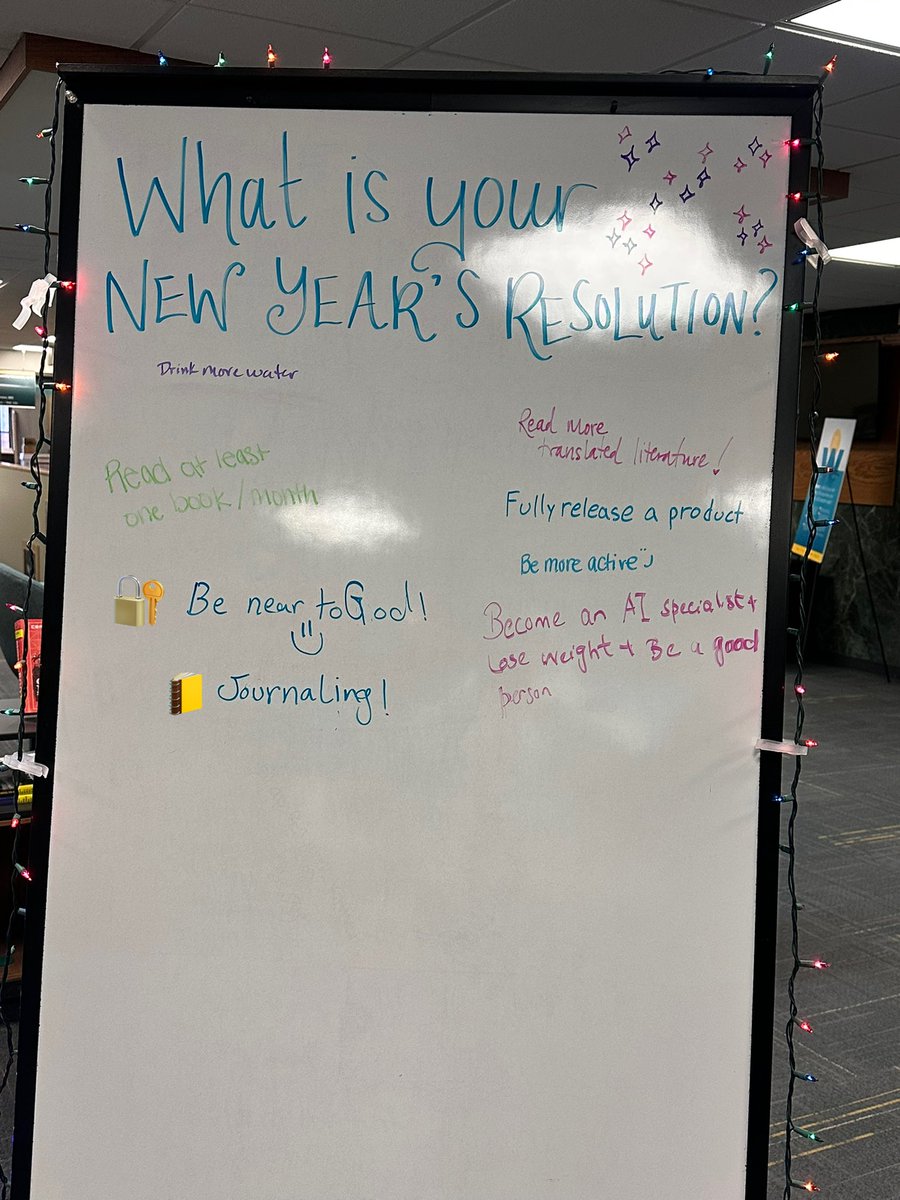 What is your
NEW YEAR'S RESOLUTION?
Drink more water
Read at least
one book/month
Be near to God!
Journaling!
Read more
translated literature!
Fully release a product
Be more active
Become an AI specialist +
lose weight + Be a good
person